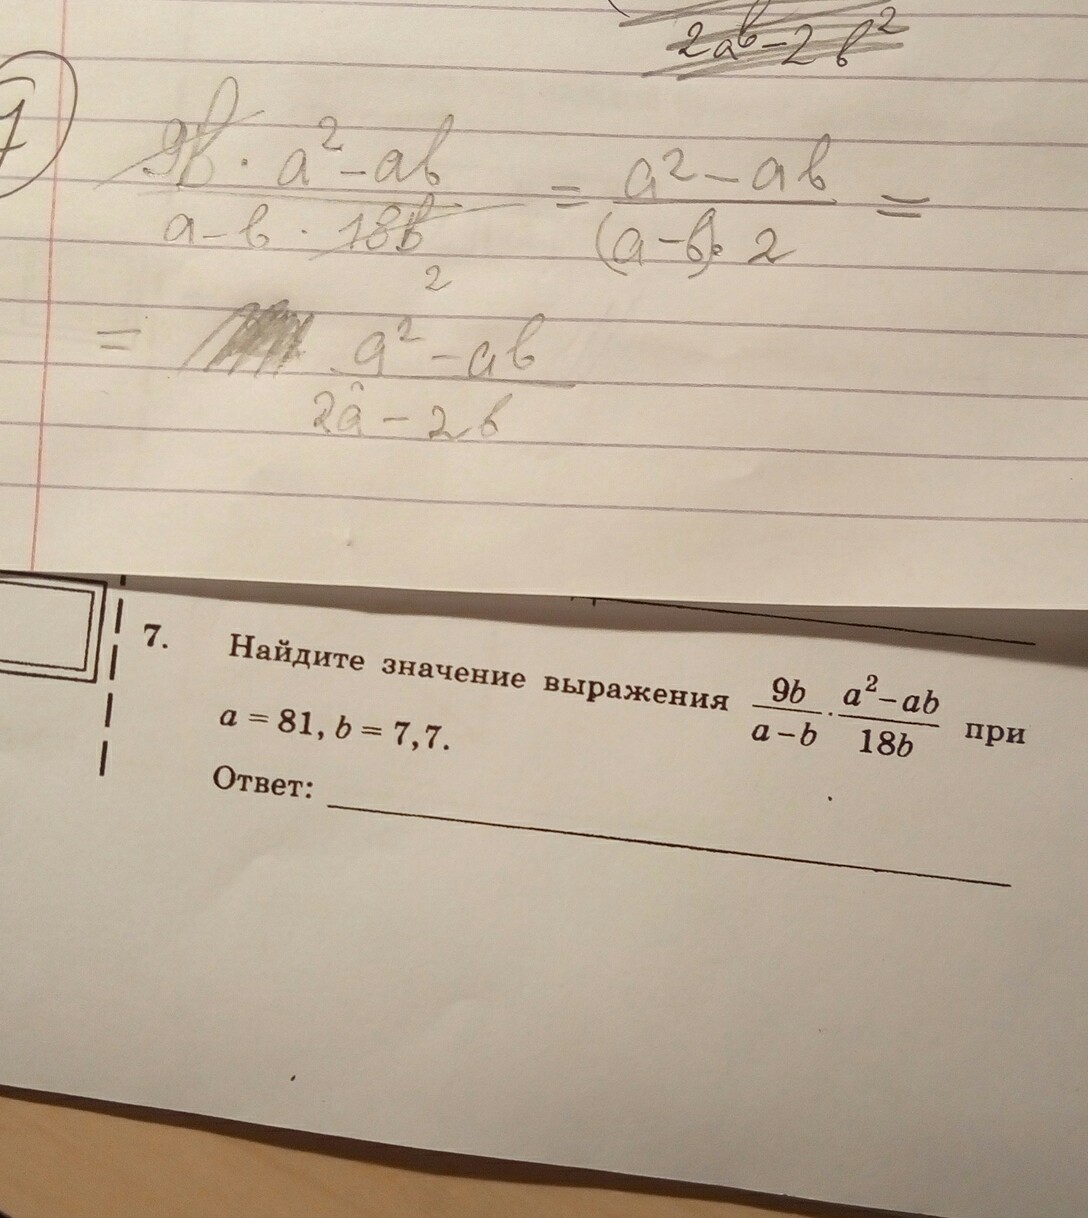 2ab-2b²
7
9b · a² - ab
a - b · 18b
2
= a² - ab =
(a - b) · 2
= a² - ab
2a - 2b
7. Найдите значение выражения 9b/(a-b) · (a²-ab)/18b при
a = 81, b = 7,7.
Ответ: